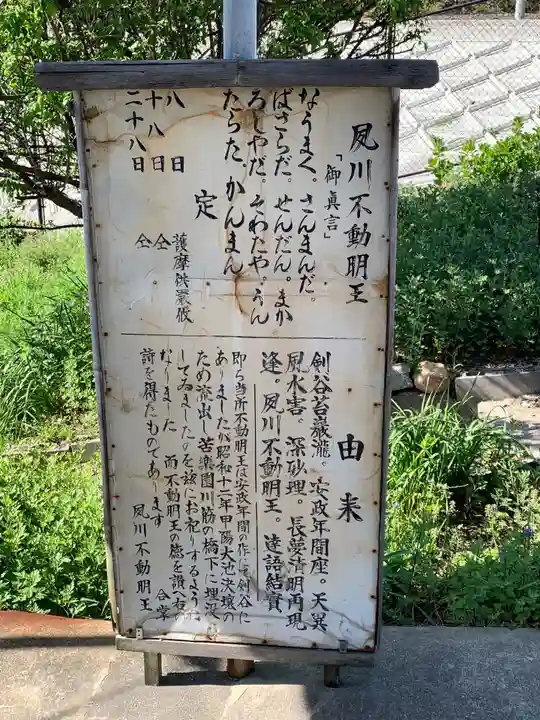 夙川不動明王
「御眞言」
なうまく。さんまんだ。
ばさらだ。せんだん。まか
ろしやだ。そわたや。うん
たらた。かんまん
定
八日 護摩供嚴修
十八日 仝 。
二十八日 仝
由来
剣谷苔巌瀧。安政年間座。天災
風水害。深砂理。長夢清明再現
逢。夙川不動明王。達語結實
即ち当所不動明王は安政年間の作で剣谷に
ありましたが昭和十二年甲陽大池決壊の
ため流出し苦楽園川筋の橋下に埋没
してゐましたのを該にお祀りする
なりました 而不動明王の徳を讃へ右の
詩を得たものであります 合掌
夙川不動明王